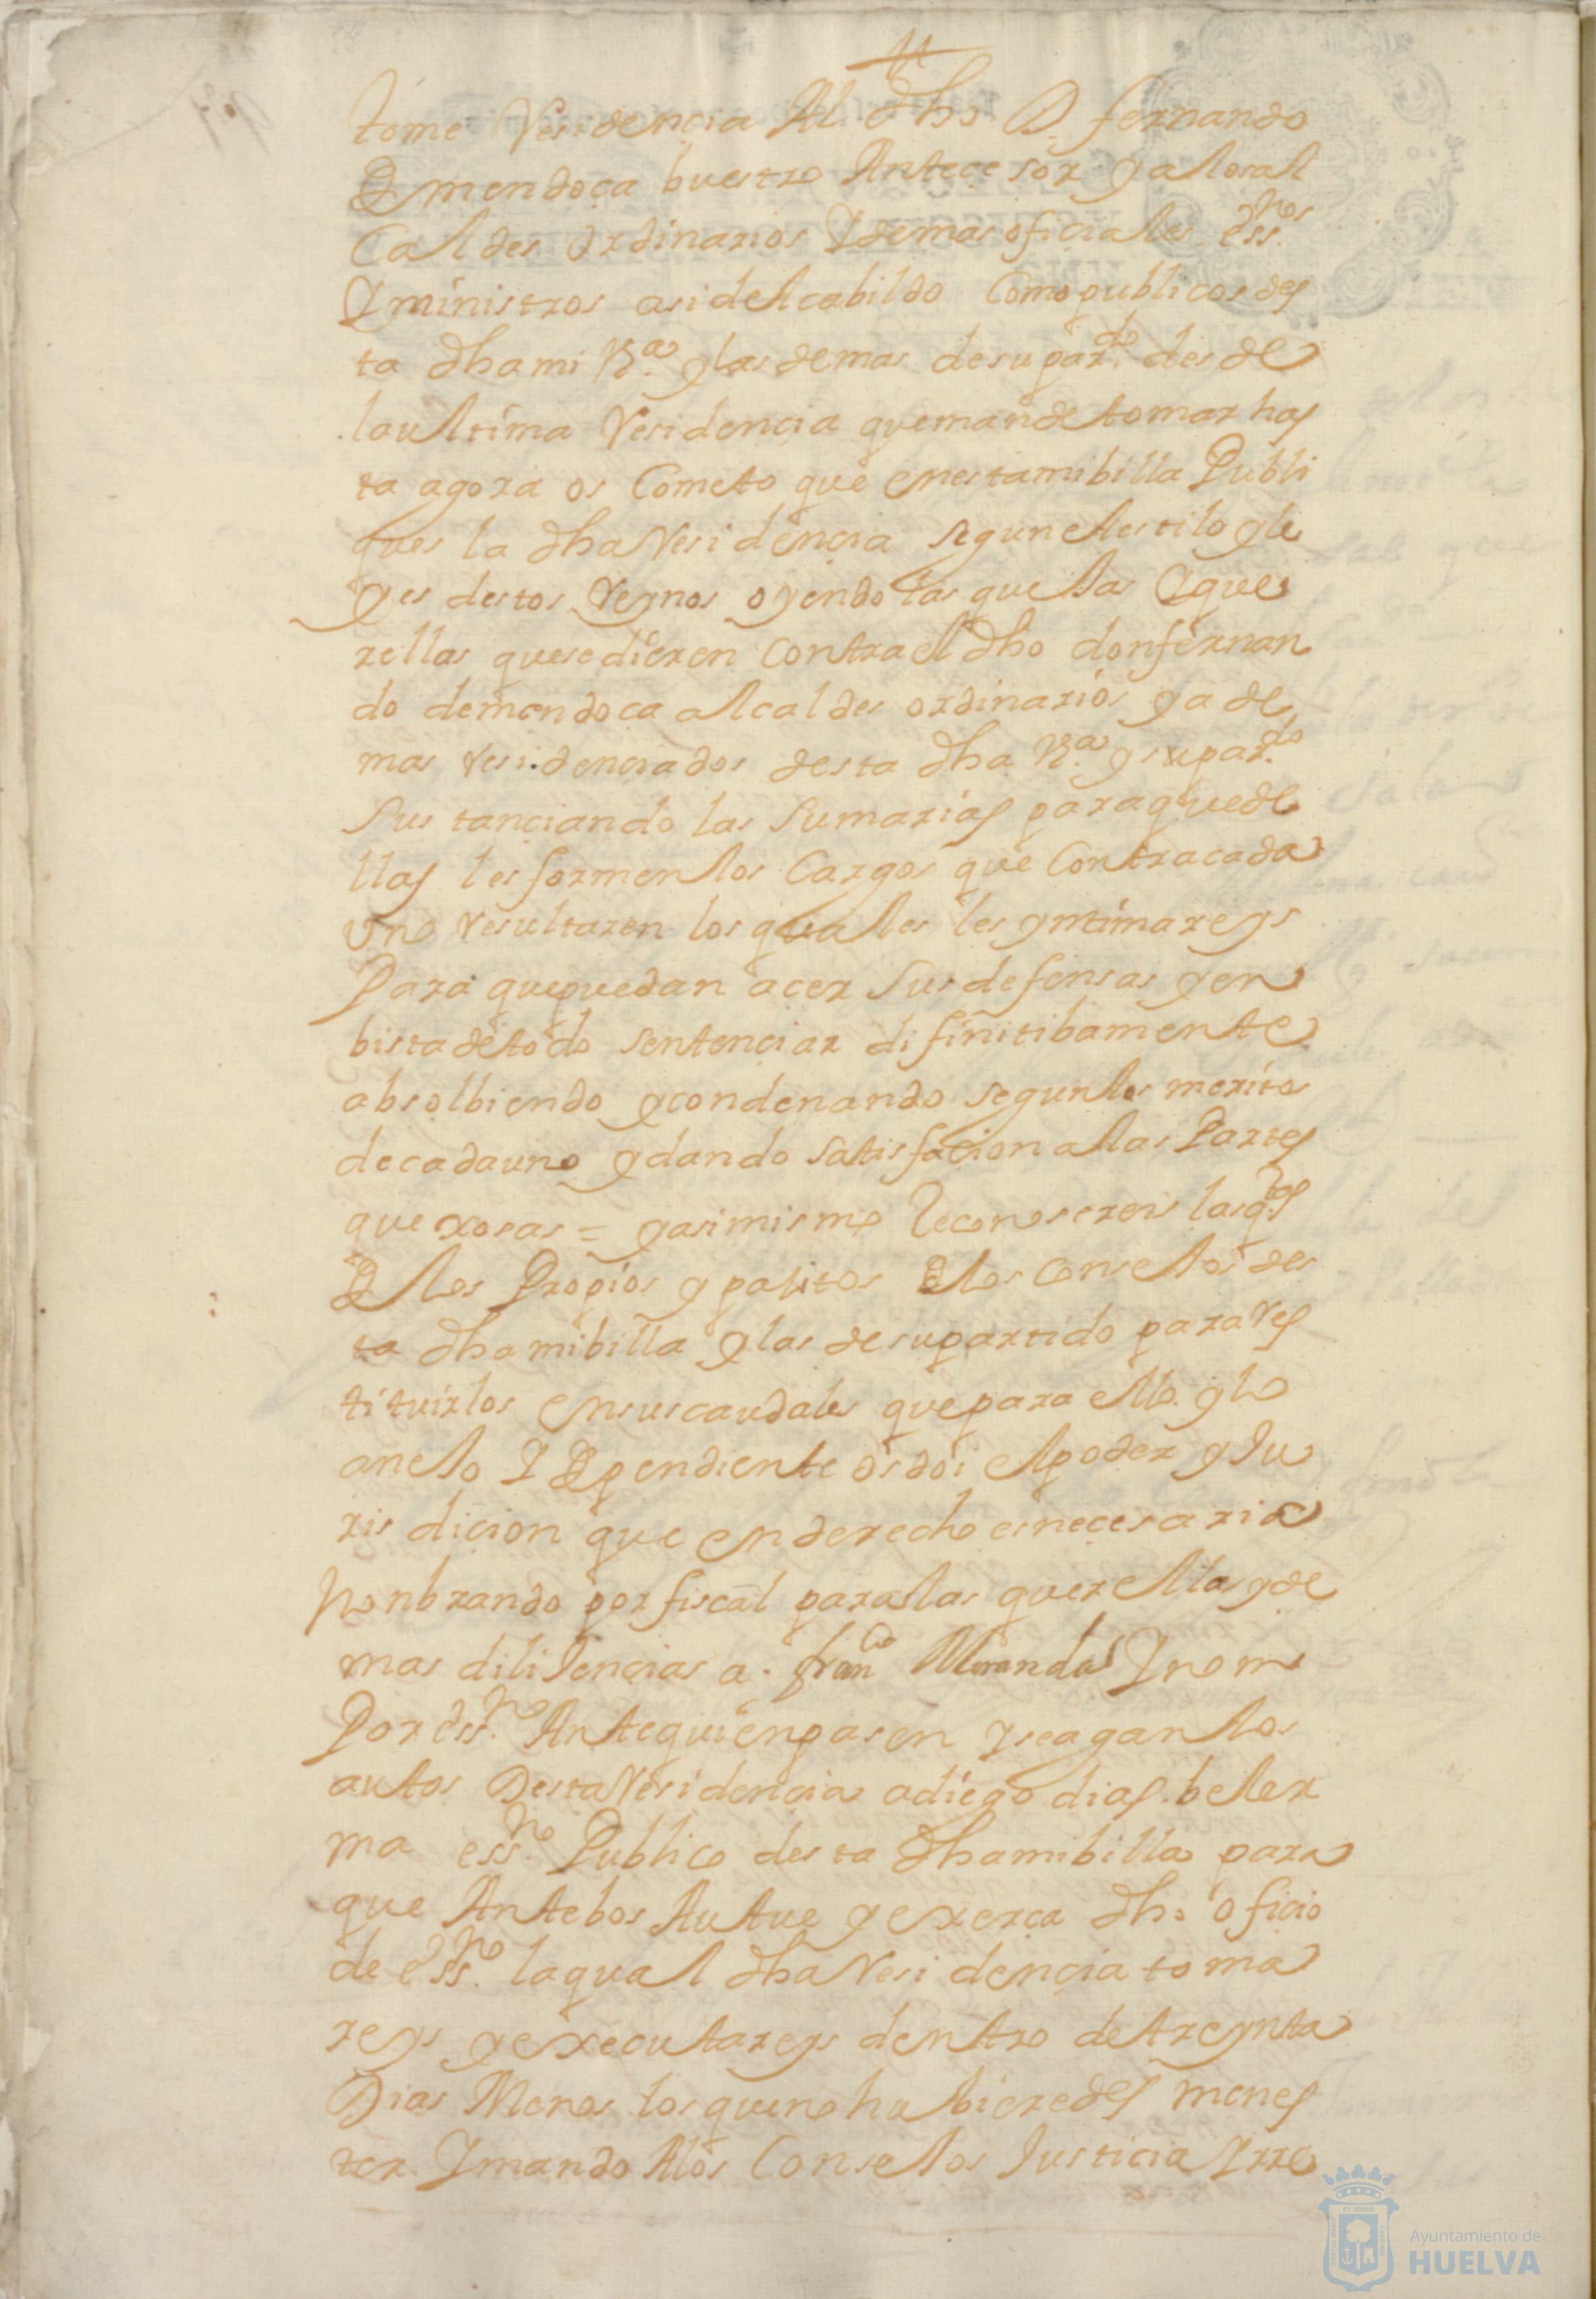 tome Residencia Al dho D. fernando
de mendoça buestro Antecesor y a los al
Caldes ordinarios Y demas oficiales essnos
Y ministros asi del cabildo Como publicos des
ta dha mi Va. y las demas de su pardo. desde
la ultima Residencia que mande tomar has
ta agora os Cometo que en esta mi billa Publi
ques la dha Residencia segun el estilo y le
yes destos Reynos oyendo las quexas Y que
rellas que se dieren contra el dho don fernan
do de mendoca alcaldes ordinarios y a de
mas residenciados desta dha Va. y su pardo.
Sustanciando las Sumarias para que de
llas les formen los Cargos que Contra cada
vno resultaren los quales les yntimareys
Para que puedan acer sus defensas y en
bista de todo sentenciar difinitibamente
absolbiendo y condenando segun los meritos
de cada uno y dando satisfacion a las Partes
quexosas = y asi mismo Reconosereis las qtas
de los Propios y positos de los conseJos des
ta dha mi billa y las de su partido para res
tituirlos en sus caudales que para ello y lo
aneJo Y dependiente os doi el poder y Ju
risdicion que en derecho es necesaria
Nonbrando por fiscal para las querellas y de
mas diliJencias a. franco Miranda Y nom
Por essno. Ante quien pasen y se agan los
autos Desta Residencia a diego dias beler
ma essno. Publico desta dha mi billa para
que Ante bos Autue y exerca dho oficio
de essno. la qual dha Residencia toma
reys y executareys dentro de treynta
Dias Menos los que no hubieredes menes
ter Y mando A los ConseJos Justicia Y rre
Ayuntamiento de
HUELVA